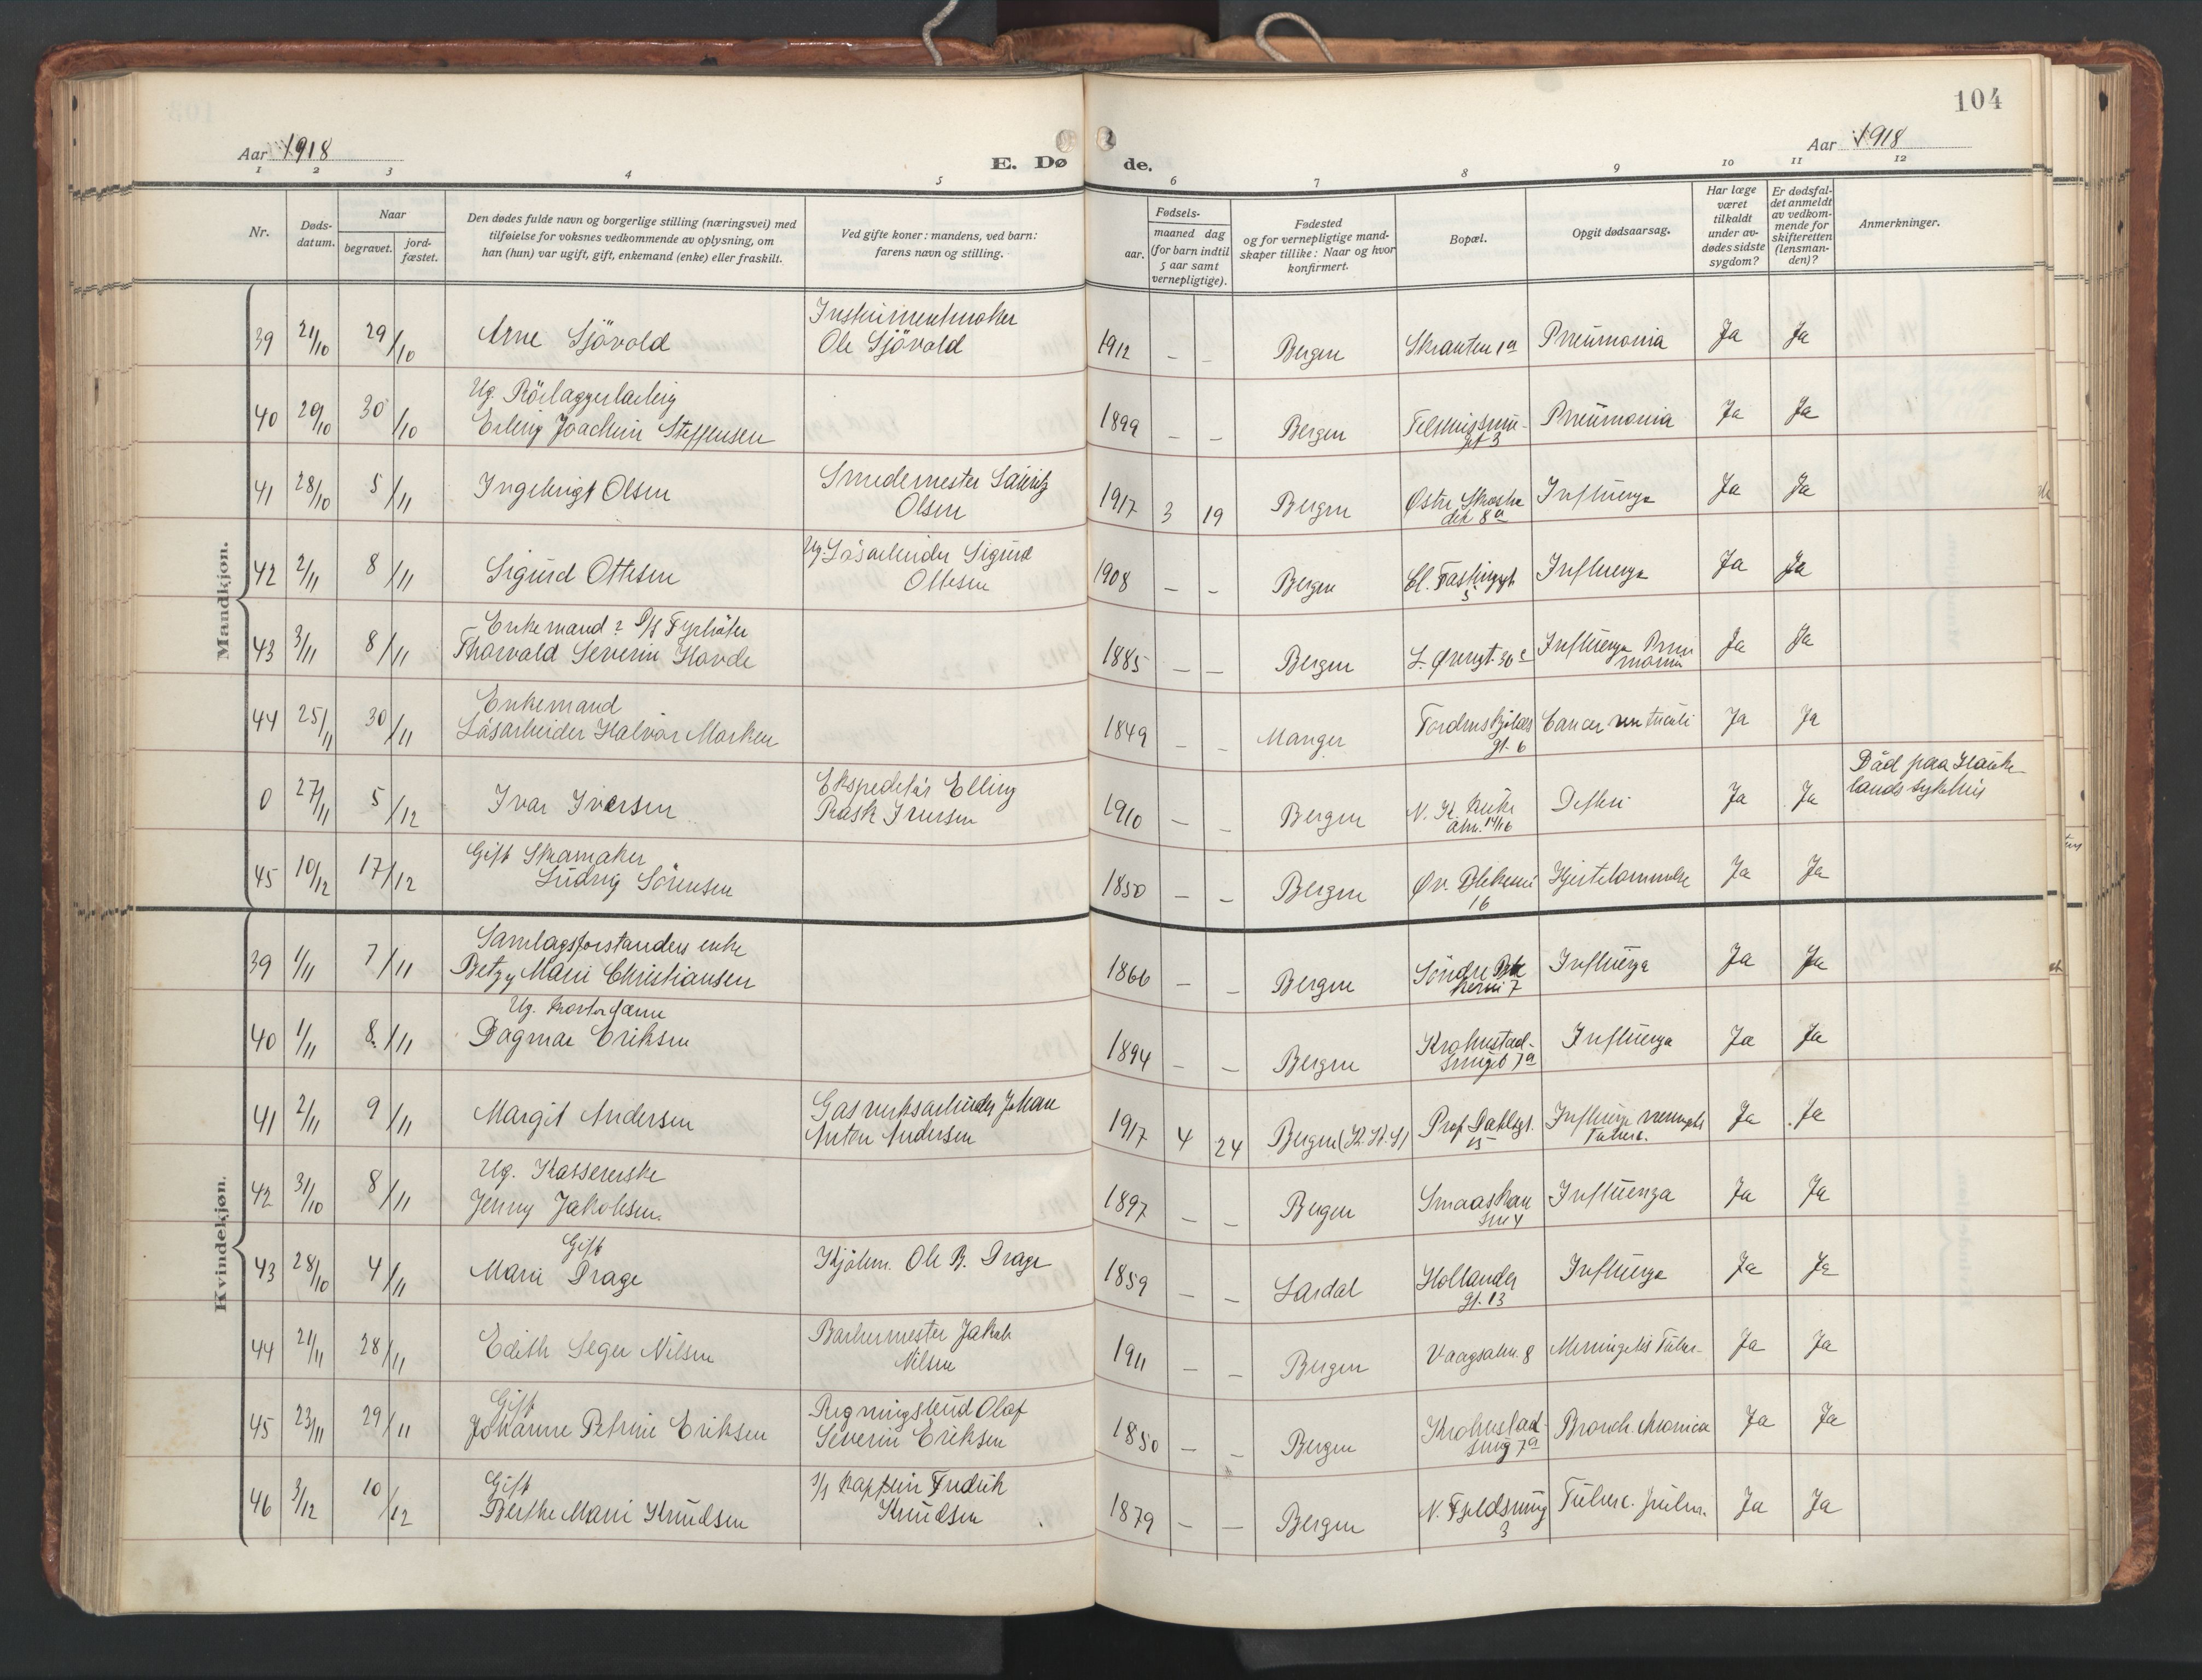 104
Aar 1918
E. Døde.
Aar 1918
1 2 3 4 5 6 7 8 9 10 11 12
Nr.
Dødsdatum.
Naar
begravet.
jordfæstet.
Den dødes fulde navn og borgerlige stilling (næringsvei) med
tilføielse for voksnes vedkommende av oplysning, om
han (hun) var ugift, gift, enkemand (enke) eller fraskilt.
Ved gifte koner: mandens, ved barn:
farens navn og stilling.
Fødsels-
aar.
maaned dag
(for barn indtil
5 aar samt
vernepligtige).
Fødested
og for vernepligtige mand-
skaper tillike: Naar og hvor
konfirmert.
Bopæl.
Opgit dødsaarsag.
Har læge
været
tilkaldt
under av-
dødes sidste
sygdom?
Er dødsfal-
det anmeldt
av vedkom-
mende for
skifteretten
(lensman-
den)?
Anmerkninger.
Mandkjøn.
39 21/10 29/10 Arne Sjövold Instrumentmaker Ole Sjövold 1912 – – Bergen Skranten 1a Pneumonia Ja Ja
40 20/10 30/10 Ug. Rörlæggerlærling Erling Joachim Steffensen 1899 – – Bergen gt 3 Pneumonia Ja Ja
41 28/10 5/11 Ingebrigt Olsen Smedemester Lauritz Olsen 1917 3 19 Bergen Østre 8a Influenza Ja Ja
42 2/11 8/11 Sigurd Ottesen Ug. Løsarbeider Sigurd Ottesen 1908 – – Bergen 5 Influenza Ja Ja
43 3/11 8/11 Enkemand ? D/S Fyrböter Thorvald Severin Hovde 1885 – – Bergen L. Øvregt 30c Influenza Pneumonia Ja Ja
44 25/11 30/11 Enkemand Løsarbeider Halvor Marken 1849 – – Manger Tordenskjolds gt. 6 Cancer ventriculi Ja Ja
0 27/11 5/12 Ivar Iversen Ekspeditör Elling Rask Iversen 1910 – – Bergen N. K. Kirke alm. 14/16 Difteri Ja Ja Död paa Haukelands sykehus
45 10/12 17/12 Gift Skomaker Ludvig Sörensen 1850 – – Bergen Øv. Blekevei 16 Hjertelammelse Ja Ja
Kvindekjøn.
39 1/11 7/11 Samlagsforstanders enke Betzy Marie Christiansen 1866 – – Bergen Söndre Blekevei 7 Influenza Ja Ja
40 1/11 8/11 Ug. Kontordame Dagmar Eriksen 1894 – – Bergen Krohnstadsmuget 7a Influenza Ja Ja
41 2/11 9/11 Margit Andersen Gasverksarbeider Johan Anton Andersen 1917 4 24 Bergen (K.K.S) Prof. Dahlsgt. 15 Influenza Tuberc. Ja Ja
42 31/10 8/11 Ug. Kassererske Jenny Jakobsen. 1897 – – Bergen 4 Influenza Ja Ja
43 28/10 4/11 Gift Marie Drage Kjölem. Ole B. Drage 1859 – – Lærdal Hollander gt. 13 Influenza Ja Ja
44 21/11 28/11 Edith Seger Nilsen Barbermester Jakob Nilsen 1911 – – Bergen Vaagsalm. 8 Meningitis Tuber. Ja Ja
45 23/11 29/11 Gift Johanne Petrine Eriksen Regningsbud Olaf Severin Eriksen 1850 – – Bergen Krohnstadsmug 7a Bronch. chronica Ja Ja
46 3/12 10/12 Gift Berthe Marie Knudsen S/S Kaptein Fredrik Knudsen 1879 – – Bergen N. Fjeldsmug 3 Tuberc. pulm. Ja Ja